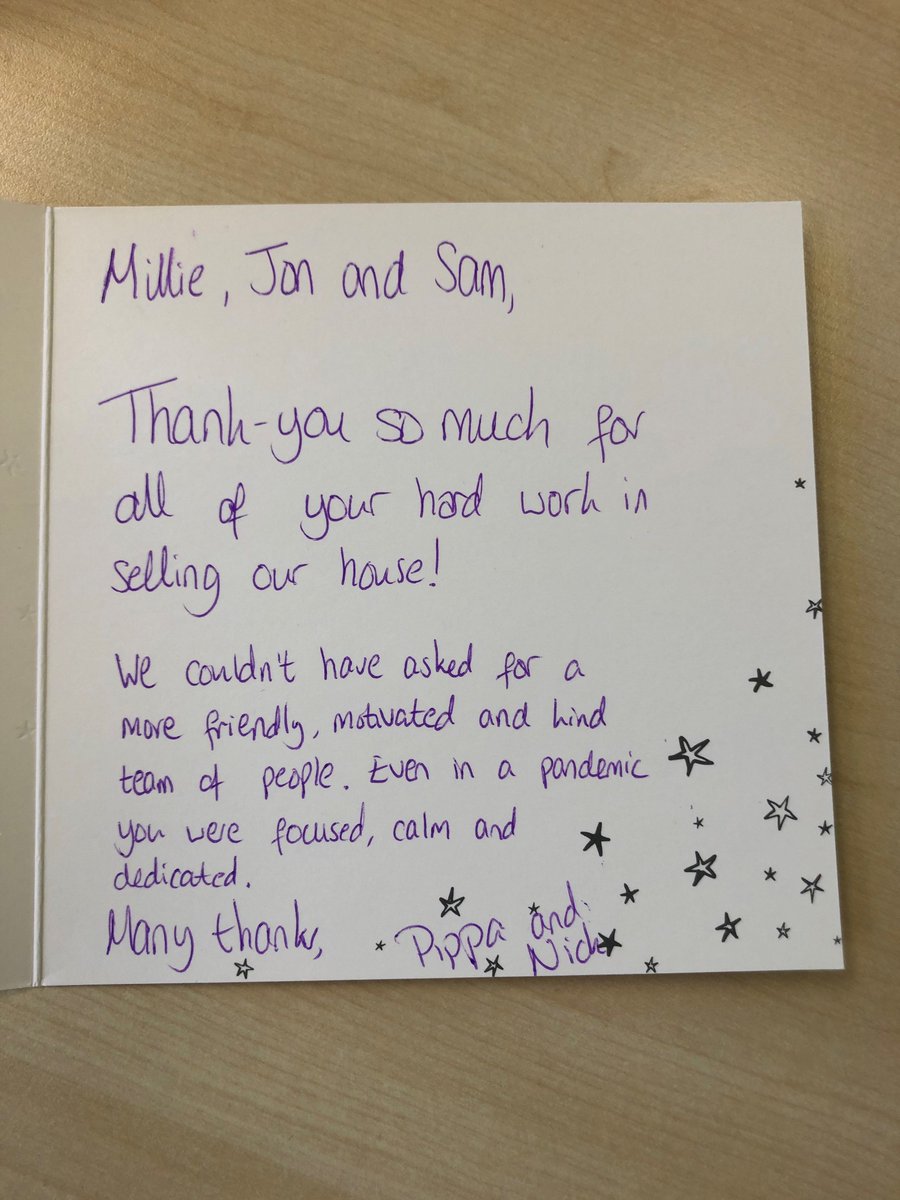 Millie, Jon and Sam,
Thank-you so much for
all of your hard work in
selling our house!
We couldn't have asked for a
more friendly, motivated and kind
team of people. Even in a pandemic
you were focused, calm and
dedicated.
Many thanks,
Pippa and
Nick